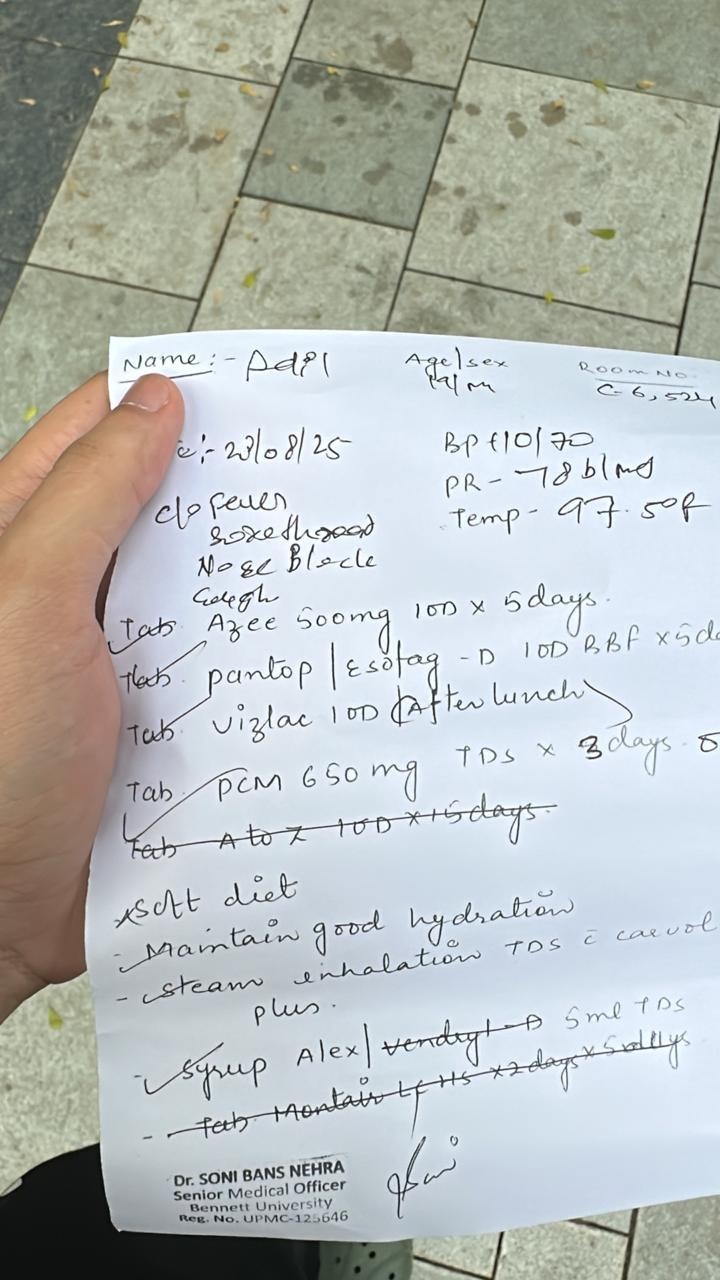 Name:- Adil
Age/sex
19/M
Room No.
C-6, 524
23/08/25
BP 110/70
PR- 78 b/md
Temp- 97.50f
c/o Fever
Sorethroad
Nose Block
Cough
Tab. Azee 500mg 10D x 5days.
Tab. pantop/Esofag-D 10D BBF x5da
Tab. Vizlac 10D (After lunch)
Tab. PCM 650mg TDS x 3days.
Tab A to Z 10D x 15days.
soft diet
- Maintain good hydration
- steam enhalation TDS c̄ carvol
plus.
- Syrup Alex/ 5ml TDS
- Tab. Montair LC HS
Dr. SONI BANS NEHRA
Senior Medical Officer
Bennett University
Reg. No. UPMC-125646